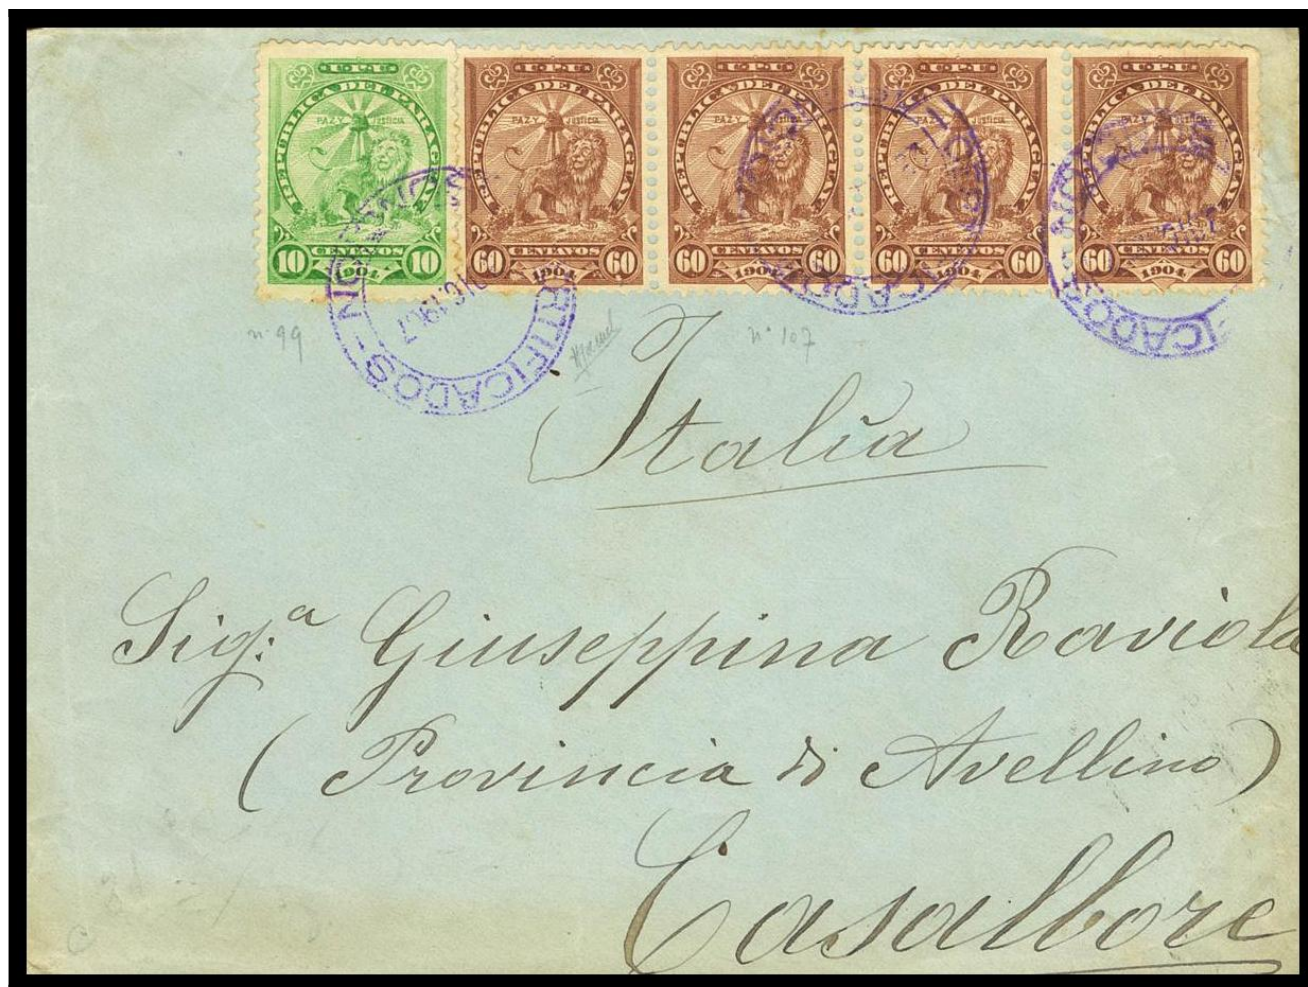 U.P.U
REPUBLICA DEL PARAGUAY
PAZ Y JUSTICIA
10 CENTAVOS 10
1904
U.P.U
REPUBLICA DEL PARAGUAY
PAZ Y JUSTICIA
60 CENTAVOS 60
1904
U.P.U
REPUBLICA DEL PARAGUAY
PAZ Y JUSTICIA
60 CENTAVOS 60
1904
U.P.U
REPUBLICA DEL PARAGUAY
PAZ Y JUSTICIA
60 CENTAVOS 60
1904
U.P.U
REPUBLICA DEL PARAGUAY
PAZ Y JUSTICIA
60 CENTAVOS 60
1904
CERTIFICADOS
n. 99
n° 107
Italia
Sig.ª Giuseppina Raviola
(Provincia di Avellino)
Casalbore